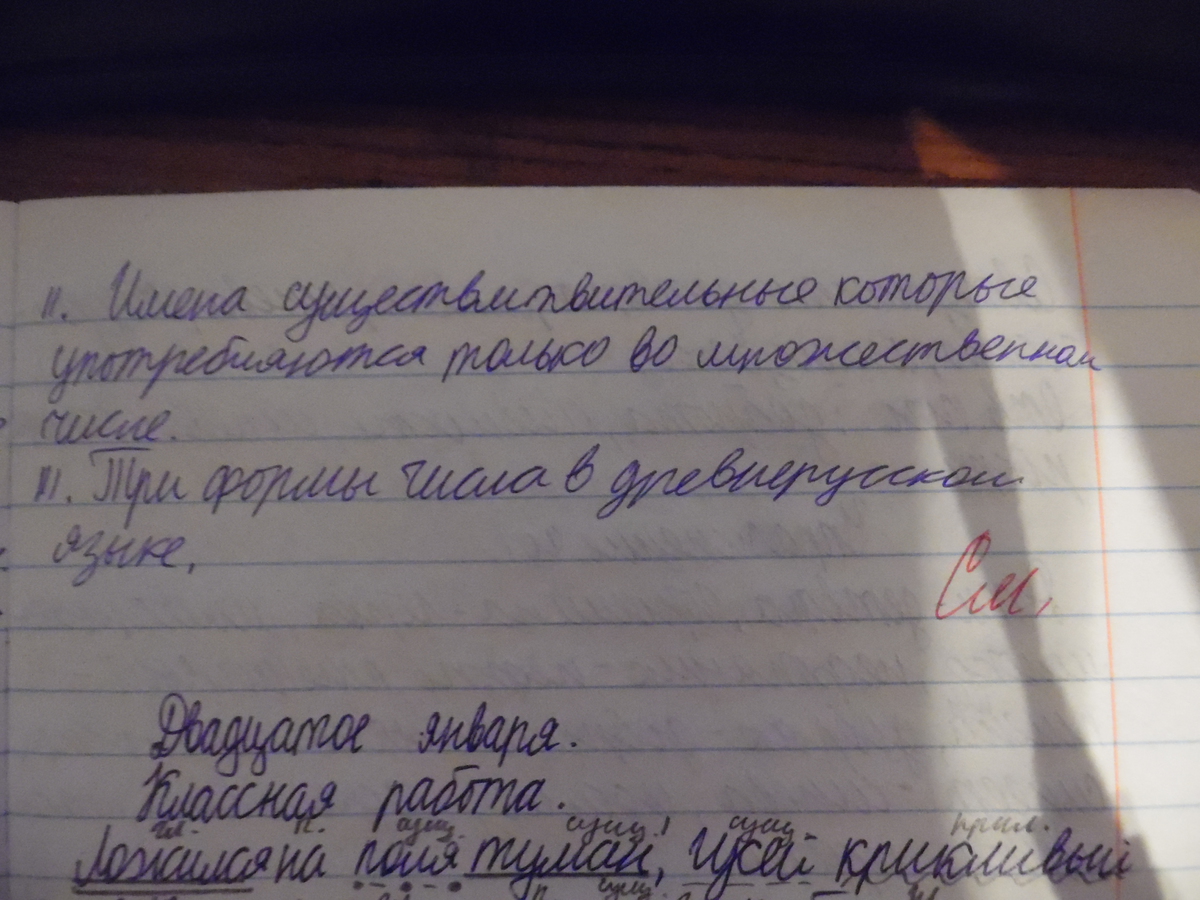 II. Имена существмтвительные которые
употребляются только во множественном
числе.
III. Три формы числа в древнерусском
языке.
См.
Двадцатое января.
Классная работа.
гл. п. сущ. сущ. сущ. прил.
Ложился на поля туман, Гусей крикливый
п. сущ.